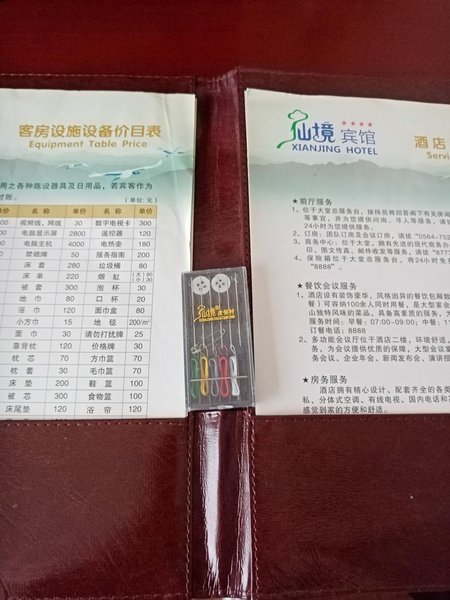 客房设施设备价目表
Equipment Table Price
用之各种陈设器具及日用品，若宾客作为
(单位:元)
单价 名称 单价 名称 单价
视频线、网线 30 数字电视卡
电脑显示屏 2800 遥控器 120
电脑主机 4000 电热壶 180
禁烟牌 50 服务指南 200
床套 280 垃圾桶 80
床单 220 烟缸 (大)80 (小)30
被套 300 泡杯 30
地巾 80 口杯 20
浴巾 120 面巾盒 80
小方巾 15 地毯 200/m²
面巾 30 请勿打扰牌 25
靠背枕 120 价格牌 30
枕芯 70 方巾篮 50
枕套 30 毛巾篮 50
床垫 鞋篮 50
被芯 食物篮 50
床尾垫 120 浴帘 120
仙境宾馆
XIANJING HOTEL
酒店
Servi
★前厅服务
1、位于大堂总服务台，接待员将回答阁下有关房间
等事宜，并为您提供问询、寻人等服务，请
24小时为您提供服务。
2、订房：团队订房及会议订房，请拨"0564-752
3、商务中心：位于大堂，拥有先进的现代商务办
印、图文传真、邮件收发等服务，请拨"877
4、保险箱位于大堂总服务台，将24小时免
"8888"。
★餐饮会议服务
1、酒店设有装饰豪华、风格迥异的餐饮包厢数
餐）可容纳100余人同时用餐，是大型宴
山独特风味的菜品，具备高素质的服务，为
服务时间：早餐：07:00—09:00；中餐：1
订餐电话：8888
2、多功能会议厅位于酒店二楼，环境舒适，
务，为会议提供优质的保障，大型会议室
务会议、企业年会、新闻发布会、演讲授
★房务服务
酒店拥有精心设计、配套齐全的各类
私、分体式空调、有线电视、国内电话和
感觉到家的方便和舒适。
仙境宾馆